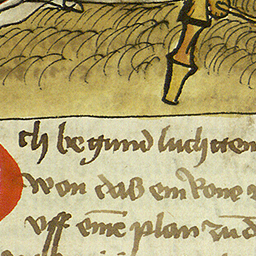 ch begund luchtten
won das ein kone
vff eine plan zu d